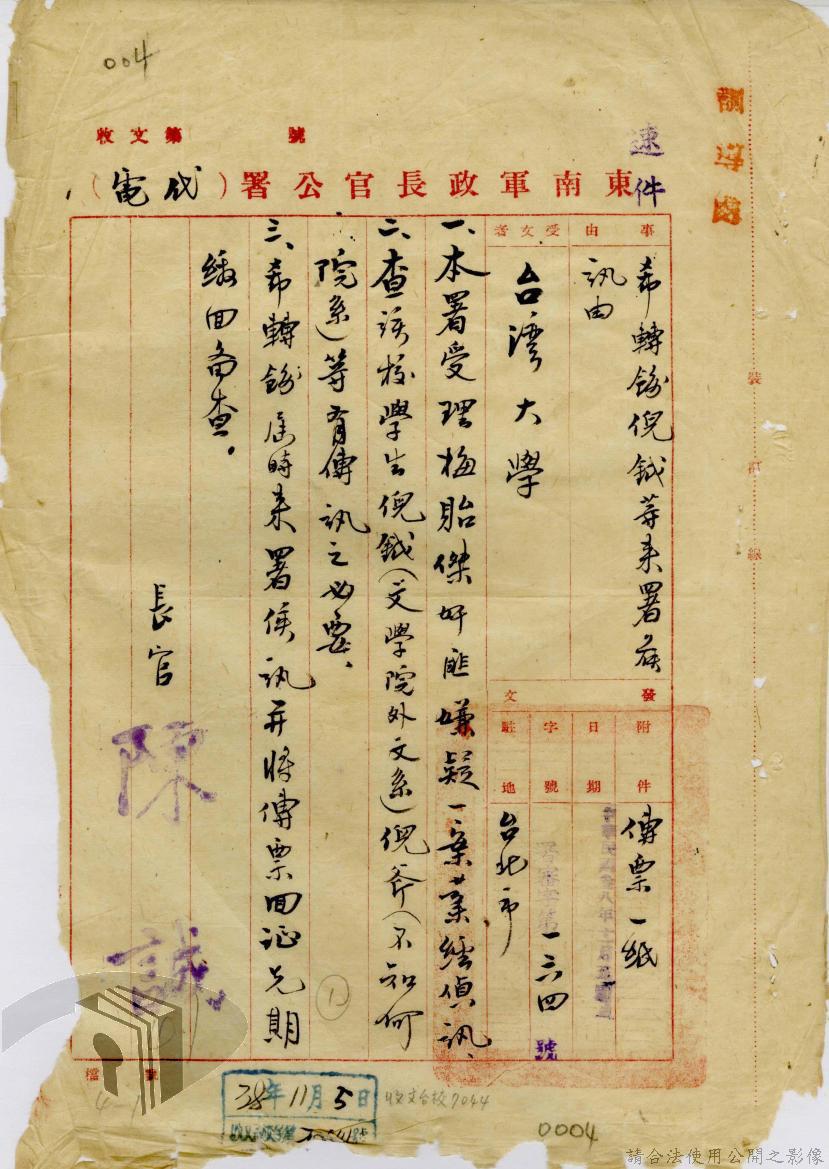 004
收文第 號
速件
東南軍政長官公署（代電）
事由
希轉飭倪鉞等來署應
訊由
受文者
台灣大學
發文
附件
傳票一紙
日期
字號
一六四號
駐地
台北市
一、本署受理梅貽傑奸匪嫌疑一案業經偵訊、
二、查該校學生倪鉞（文學院外文系）倪斧（不知何
院系）等有傳訊之必要、
三、希轉飭屆時來署候訊并將傳票回証先期
繳回備查。
長官
陳誠
裝訂線
檔號
4-1
①
38年11月5日
收文台校7044
0004
請合法使用公開之影像